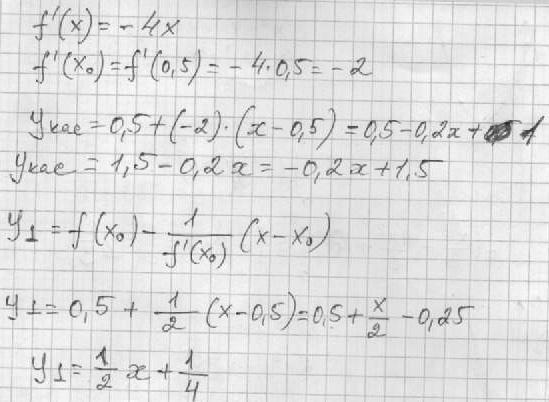 f'(x) = - 4x
f'(x₀) = f'(0,5) = - 4·0,5 = - 2
yкас = 0,5 + (-2)·(x - 0,5) = 0,5 - 0,2x + 1
yкас = 1,5 - 0,2x = -0,2x + 1,5
y⊥ = f(x₀) - 1/f'(x₀) (x - x₀)
y⊥ = 0,5 + 1/2 (x - 0,5) = 0,5 + x/2 - 0,25
y⊥ = 1/2 x + 1/4